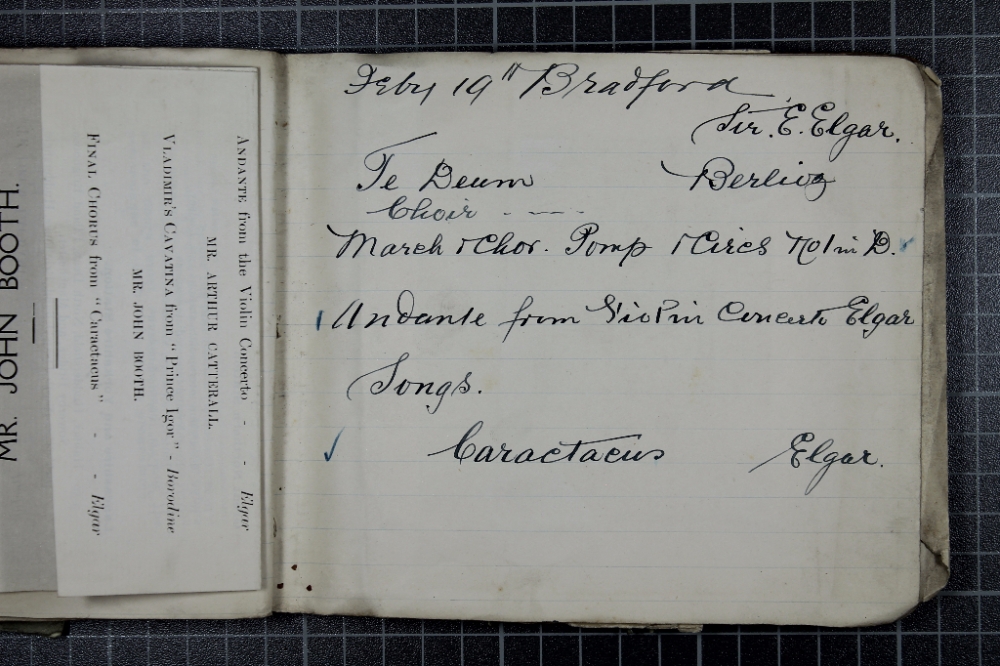 MR. JOHN BOOTH.
ANDANTE from the Violin Concerto - - Elgar
MR. ARTHUR CATTERALL.
VLADIMIR'S CAVATINA from "Prince Igor" - Borodine
MR. JOHN BOOTH.
FINAL CHORUS from "Caractacus" - - Elgar
Feby 19th Bradford
Sir. E. Elgar.
Te Deum Berlioz
Choir - ----
March & Chor. Pomp & Circs No 1 in D.
Andante from Violin Concerto Elgar
Songs.
Caractacus Elgar.